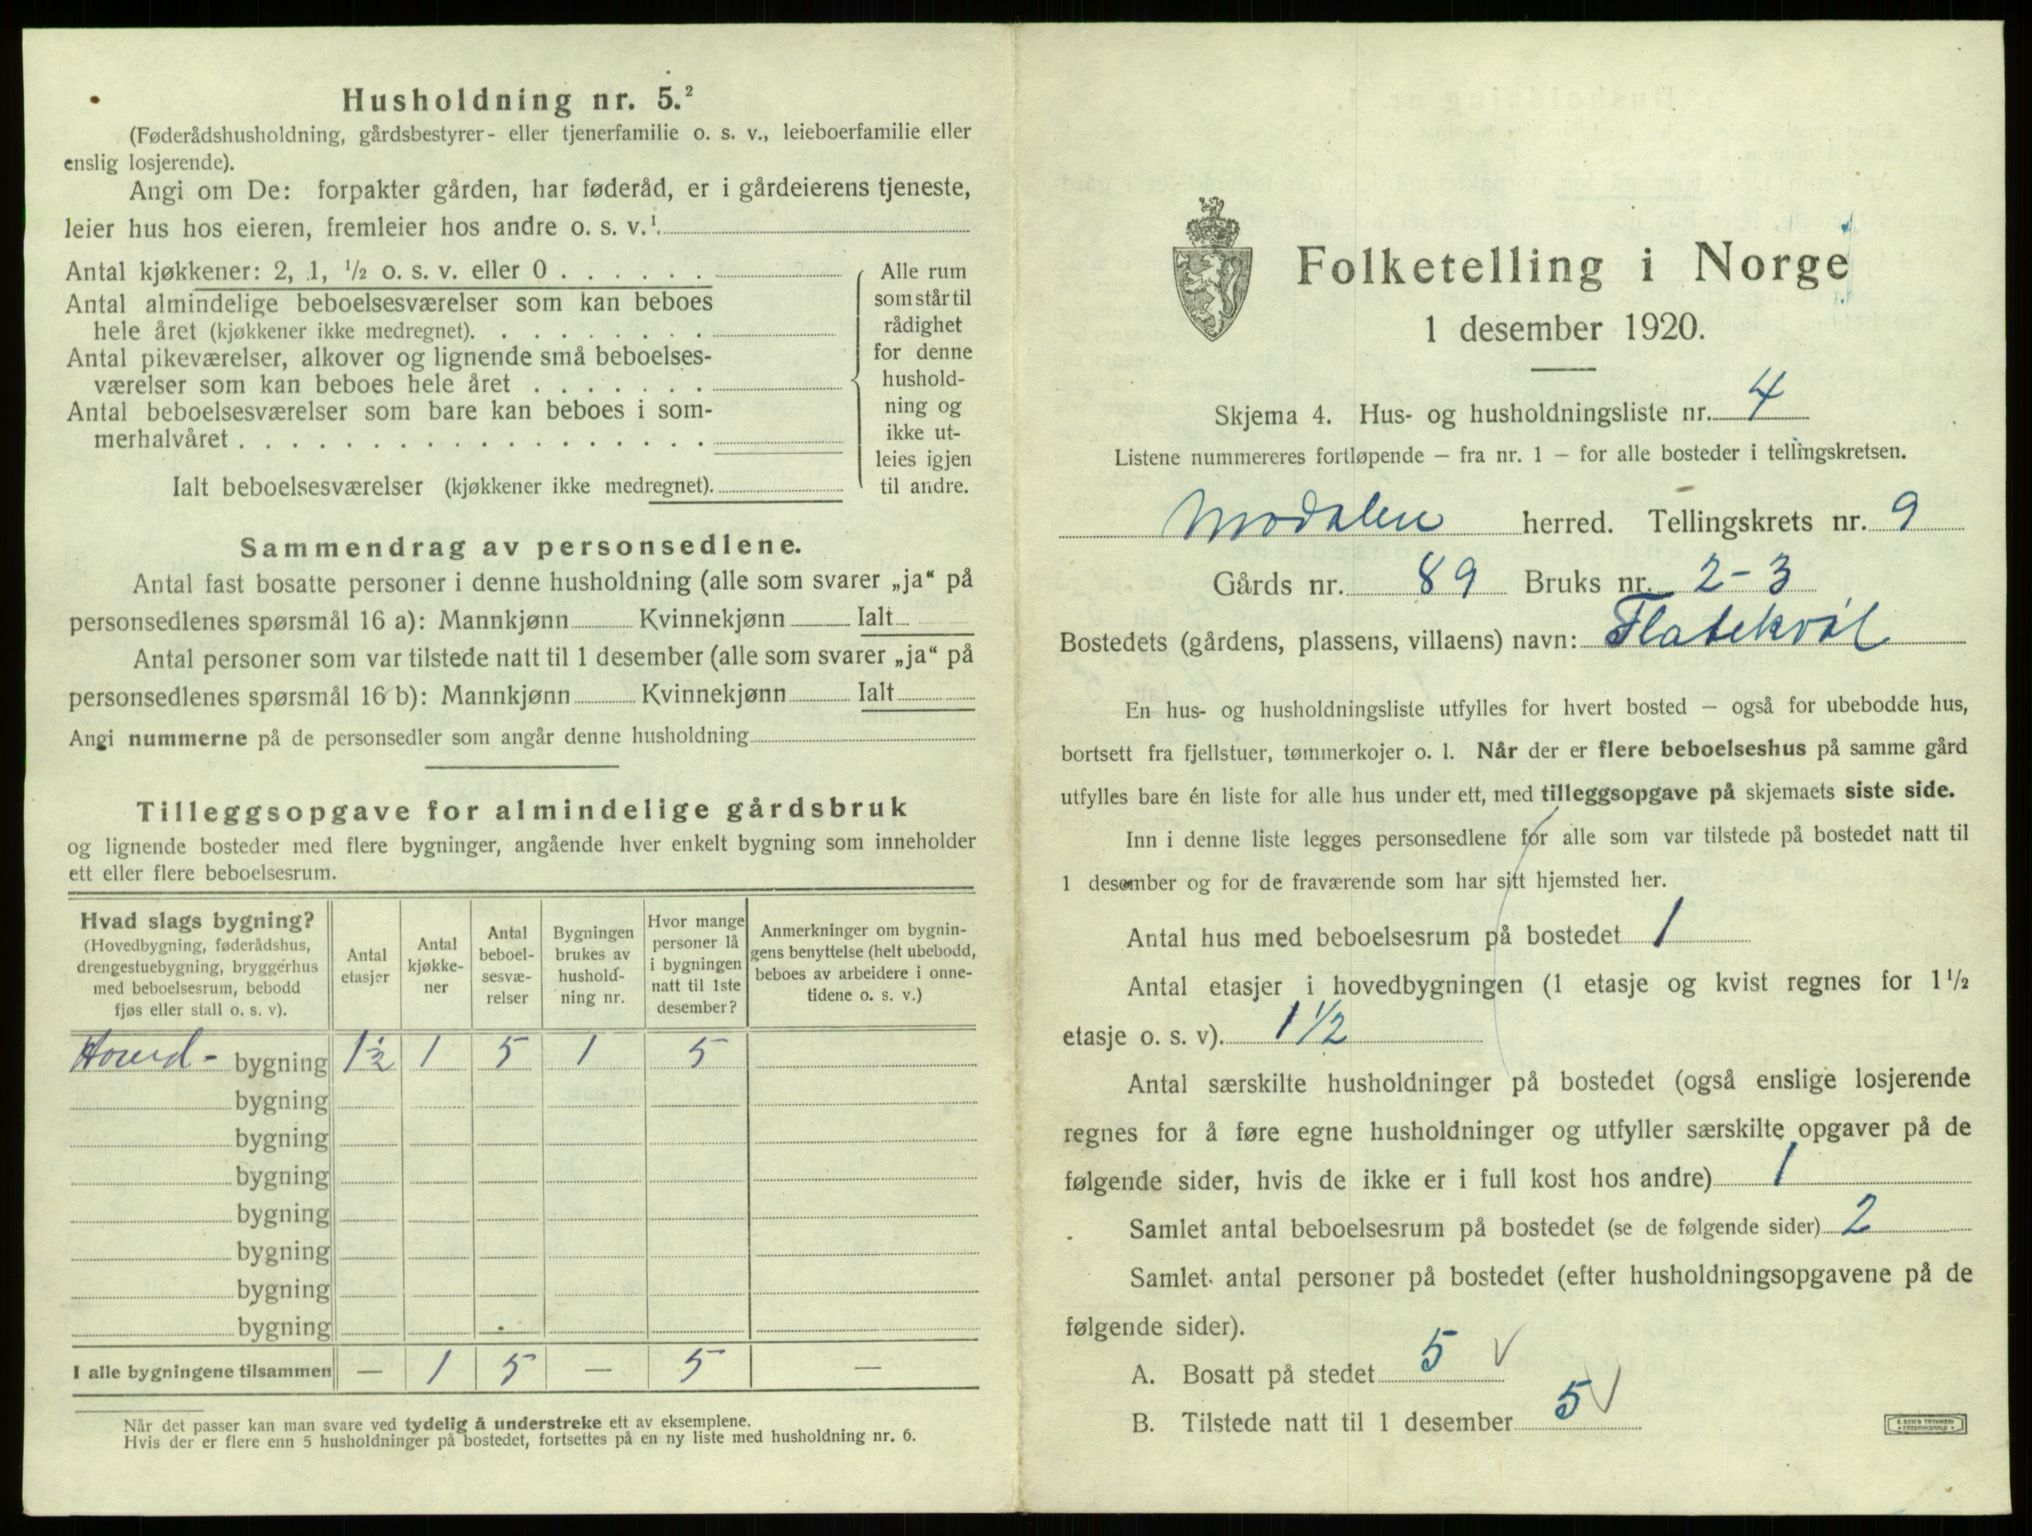 Husholdning nr. 5.²
(Føderådshusholdning, gårdsbestyrer- eller tjenerfamilie o. s. v., leieboerfamilie eller
enslig losjerende).
Angi om De: forpakter gården, har føderåd, er i gårdeierens tjeneste,
leier hus hos eieren, fremleier hos andre o. s. v.¹
Antal kjøkkener: 2, 1, ½ o. s. v. eller 0 . . . . . .
Antal almindelige beboelsesværelser som kan beboes
hele året (kjøkkener ikke medregnet). . . . . . . . .
Antal pikeværelser, alkover og lignende små beboelses-
værelser som kan beboes hele året . . . . . . .
Antal beboelsesværelser som bare kan beboes i som-
merhalvåret . . . . . . . . . . . . . . . . . .
Ialt beboelsesværelser (kjøkkener ikke medregnet).
Alle rum
som står til
rådighet
for denne
hushold-
ning og
ikke ut-
leies igjen
til andre.
Sammendrag av personsedlene.
Antal fast bosatte personer i denne husholdning (alle som svarer „ja“ på
personsedlenes spørsmål 16 a): Mannkjønn Kvinnekjønn Ialt
Antal personer som var tilstede natt til 1 desember (alle som svarer „ja“ på
personsedlenes spørsmål 16 b): Mannkjønn Kvinnekjønn Ialt
Angi nummerne på de personsedler som angår denne husholdning
Tilleggsopgave for almindelige gårdsbruk
og lignende bosteder med flere bygninger, angående hver enkelt bygning som inneholder
ett eller flere beboelsesrum.
Hvad slags bygning?
(Hovedbygning, føderådshus,
drengestuebygning, bryggerhus
med beboelsesrum, bebodd
fjøs eller stall o. s. v).
Antal
etasjer
Antal
kjøkke-
ner
Antal
beboel-
sesvæ-
relser
Bygningen
brukes av
hushold-
ning nr.
Hvor mange
personer lå
i bygningen
natt til 1ste
desember?
Anmerkninger om bygnin-
gens benyttelse (helt ubebodd,
beboes av arbeidere i onne-
tidene o. s. v.)
Hoved- bygning 1½ 1 5 1 5
bygning
bygning
bygning
bygning
bygning
bygning
bygning
I alle bygningene tilsammen — 1 5 — 5 —
Når det passer kan man svare ved tydelig å understreke ett av eksemplene.
Hvis der er flere enn 5 husholdninger på bostedet, fortsettes på en ny liste med husholdning nr. 6.
Folketelling i Norge
1 desember 1920.
Skjema 4. Hus- og husholdningsliste nr. 4
Listene nummereres fortløpende – fra nr. 1 – for alle bosteder i tellingskretsen.
Modalen herred. Tellingskrets nr. 9
Gårds nr. 89 Bruks nr. 2-3
Bostedets (gårdens, plassens, villaens) navn: Flatekvöl
En hus- og husholdningsliste utfylles for hvert bosted – også for ubebodde hus,
bortsett fra fjellstuer, tømmerkojer o. l. Når der er flere beboelseshus på samme gård
utfylles bare én liste for alle hus under ett, med tilleggsopgave på skjemaets siste side.
Inn i denne liste legges personsedlene for alle som var tilstede på bostedet natt til
1 desember og for de fraværende som har sitt hjemsted her.
Antal hus med beboelsesrum på bostedet 1
Antal etasjer i hovedbygningen (1 etasje og kvist regnes for 1½
etasje o. s. v). 1½
Antal særskilte husholdninger på bostedet (også enslige losjerende
regnes for å føre egne husholdninger og utfyller særskilte opgaver på de
følgende sider, hvis de ikke er i full kost hos andre) 1
Samlet antal beboelsesrum på bostedet (se de følgende sider) 2
Samlet antal personer på bostedet (efter husholdningsopgavene på de
følgende sider).
A. Bosatt på stedet 5 √
B. Tilstede natt til 1 desember 5 √